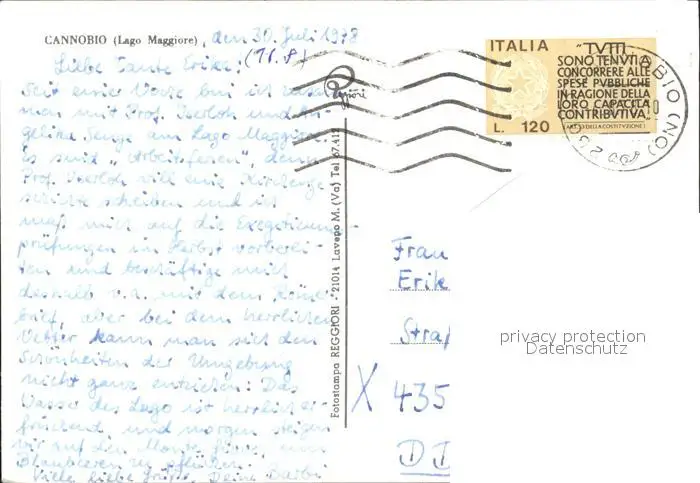 CANNOBIO (Lago Maggiore), den 30. Juli 1978
(16.8)
Liebe Tante Erika!
Seit einer Woche bin ich
men mit Prof. Iserloh und An-
gelina Senge am Lago Maggiore.
Es sind "Arbeitsferien", denn
Prof. Iserloh will eine Kirchenge-
schichte schreiben und ich
muß mich auf die Exegeticum-
prüfungen im Herbst vorberei-
ten und beschäftige mich
deshalb v.a. mit dem Römer-
brief, aber bei dem herrlichen
Wetter kann man sich den
Schönheiten der Umgebung
nicht ganz entziehen! Das
Wasser des Lago ist herrlich er-
frischend und morgen steigen
wir auf den Monte um
Blaubeeren zu pflücken.
Viele liebe Grüße, Deine Bärbel
Reggiori
Fotostampa REGGIORI - 21014 Laveno M. (Va) Tel. 67.419
ITALIA
"TUTTI
SONO TENUTI A
CONCORRERE ALLE
SPESE PUBBLICHE
IN RAGIONE DELLA
LORO CAPACITÀ
CONTRIBUTIVA"
(ART. 53 DELLA COSTITUZIONE)
L. 120
BIO (NO)
Frau
Erik
Straß
X 435
D
privacy protection
Datenschutz